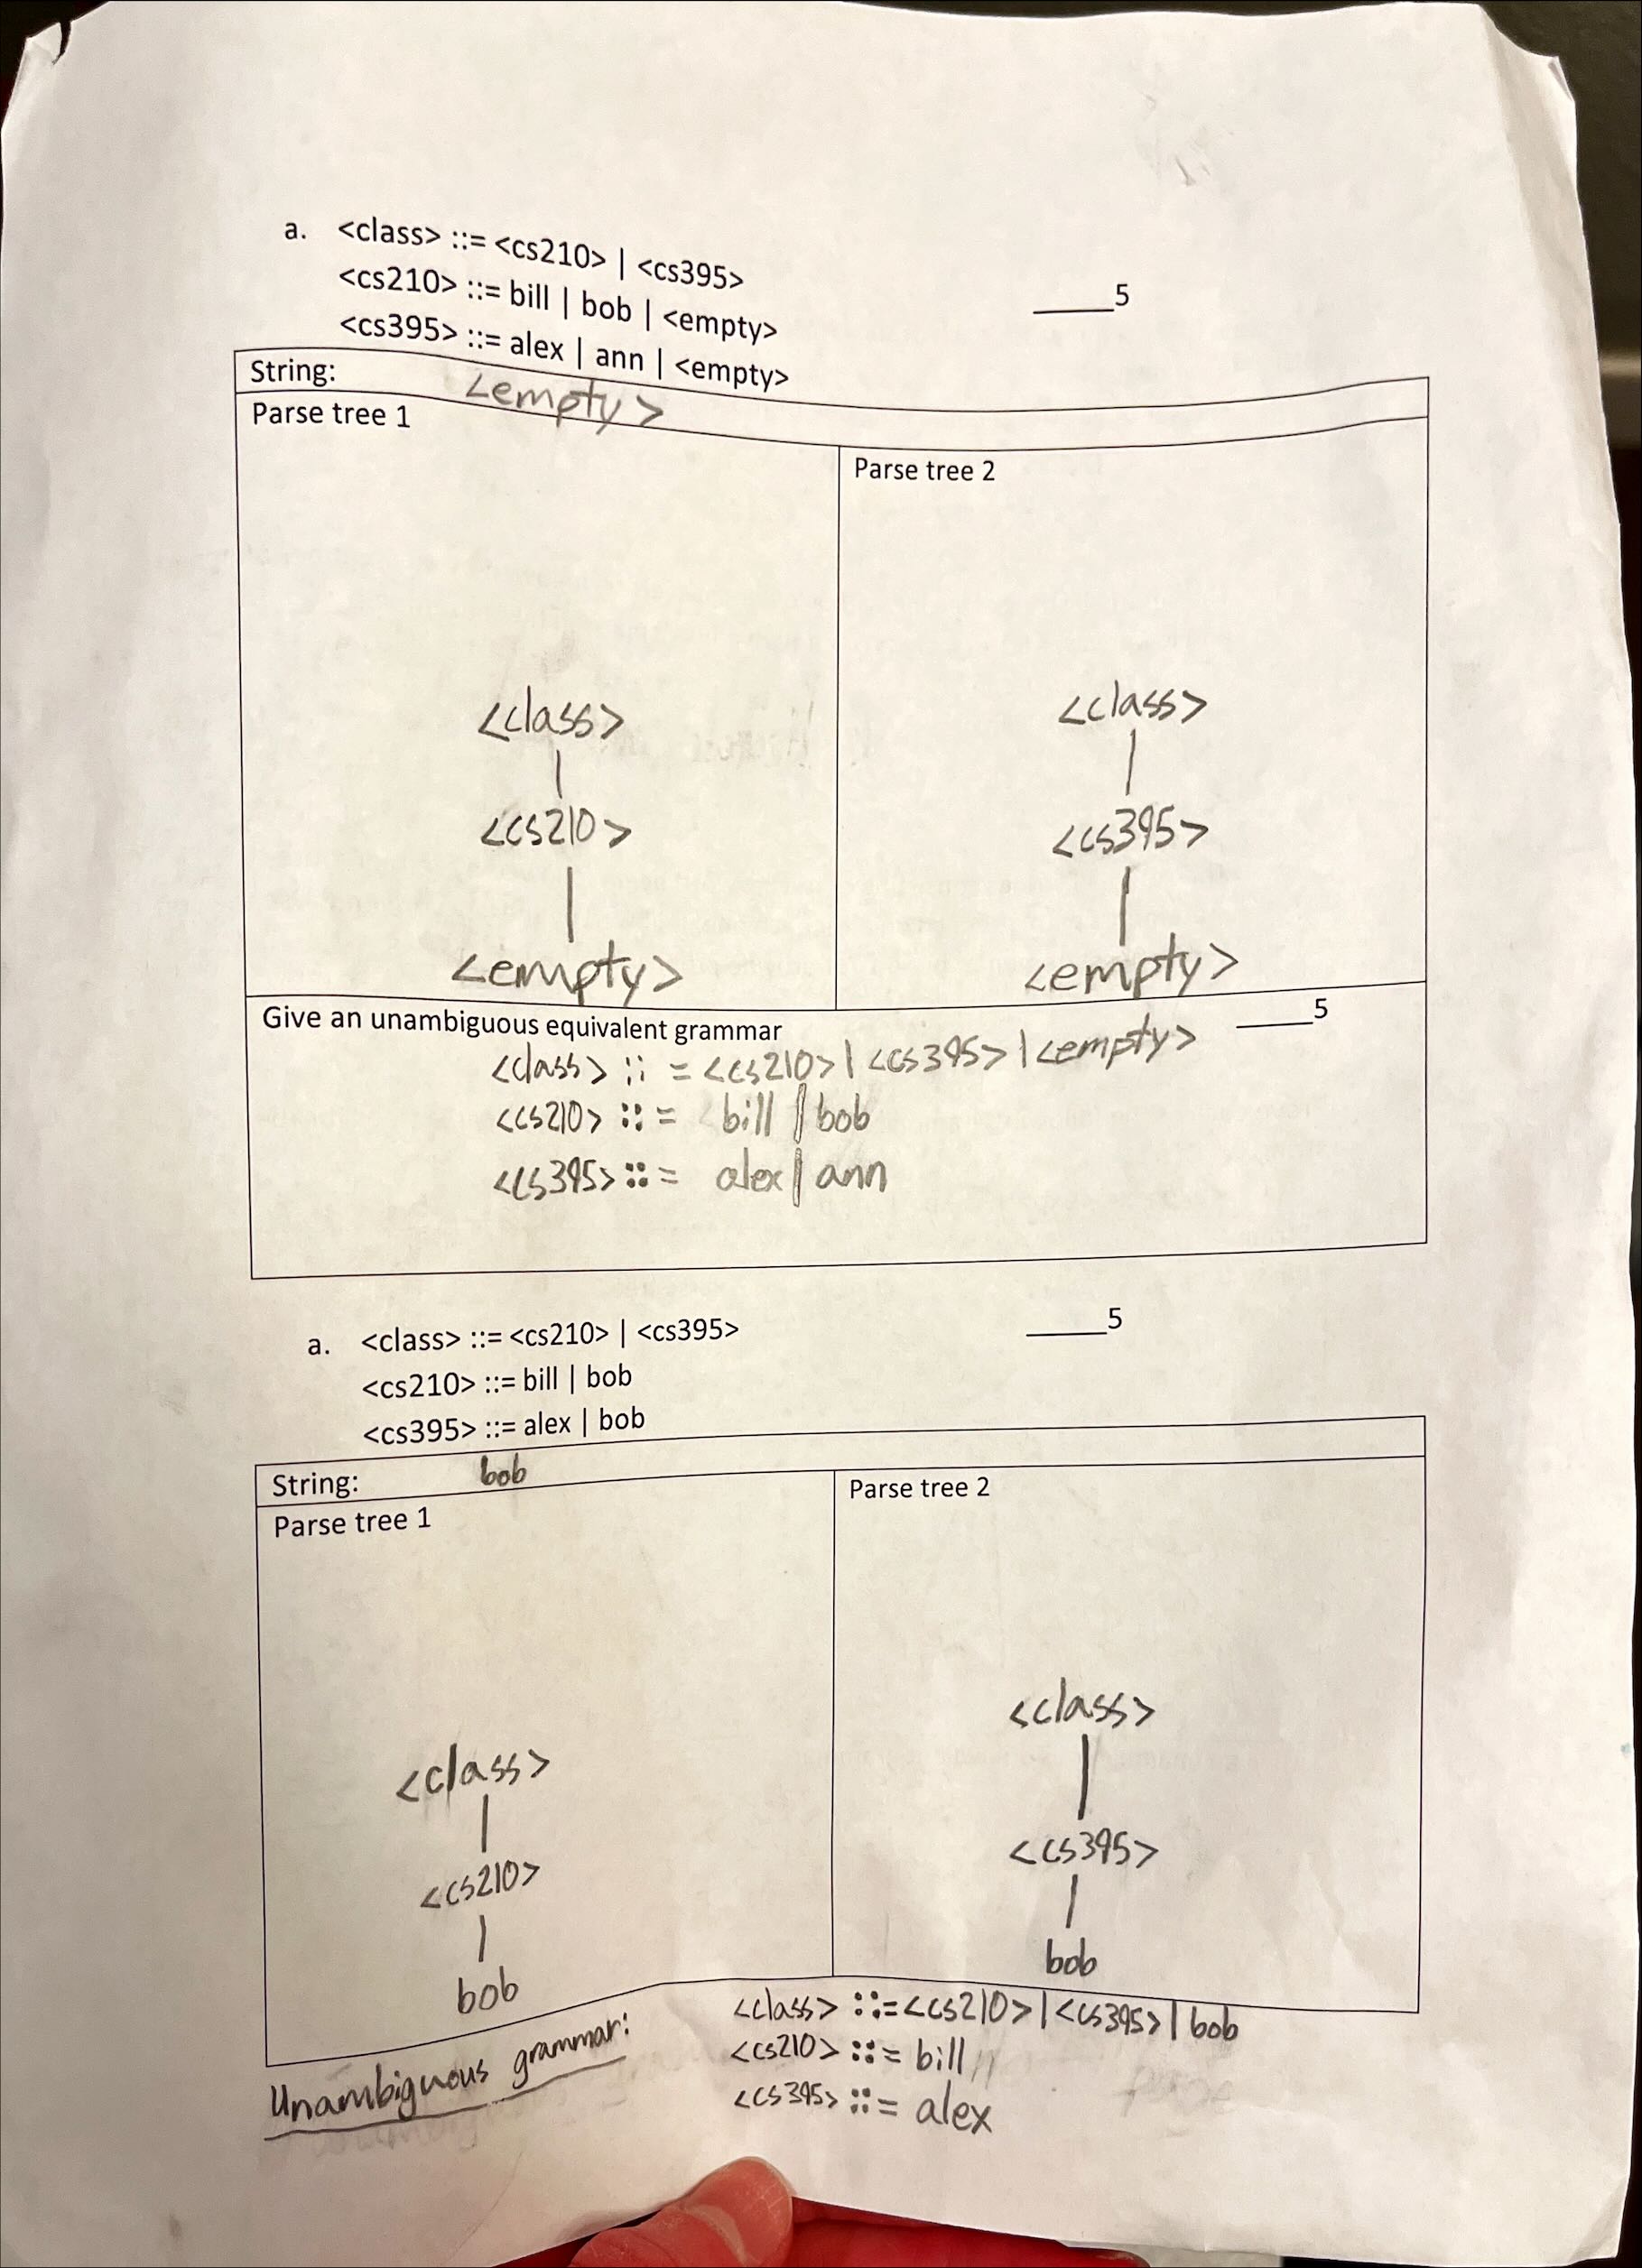 a. <class> ::= <cs210> | <cs395>
<cs210> ::= bill | bob | <empty>
_____5
<cs395> ::= alex | ann | <empty>
String: <empty>
Parse tree 1
Parse tree 2
<class>
<class>
<cs210>
<cs395>
<empty>
<empty>
Give an unambiguous equivalent grammar
_____5
<class> ::= <cs210> | <cs395> | <empty>
<cs210> ::= bill | bob
<cs395> ::= alex | ann
a. <class> ::= <cs210> | <cs395>
_____5
<cs210> ::= bill | bob
<cs395> ::= alex | bob
String: bob
Parse tree 1
Parse tree 2
<class>
<class>
<cs210>
<cs395>
bob
bob
Unambiguous grammar:
<class> ::= <cs210> | <cs395> | bob
<cs210> ::= bill
<cs395> ::= alex